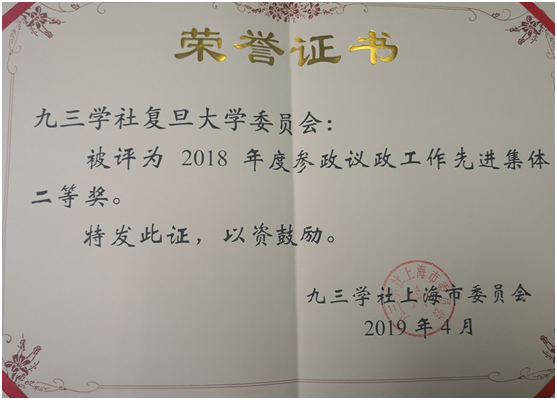 荣誉证书
九三学社复旦大学委员会：
被评为 2018 年度参政议政工作先进集体
二等奖。
特发此证，以资鼓励。
九三学社上海市委员会
2019 年 4 月